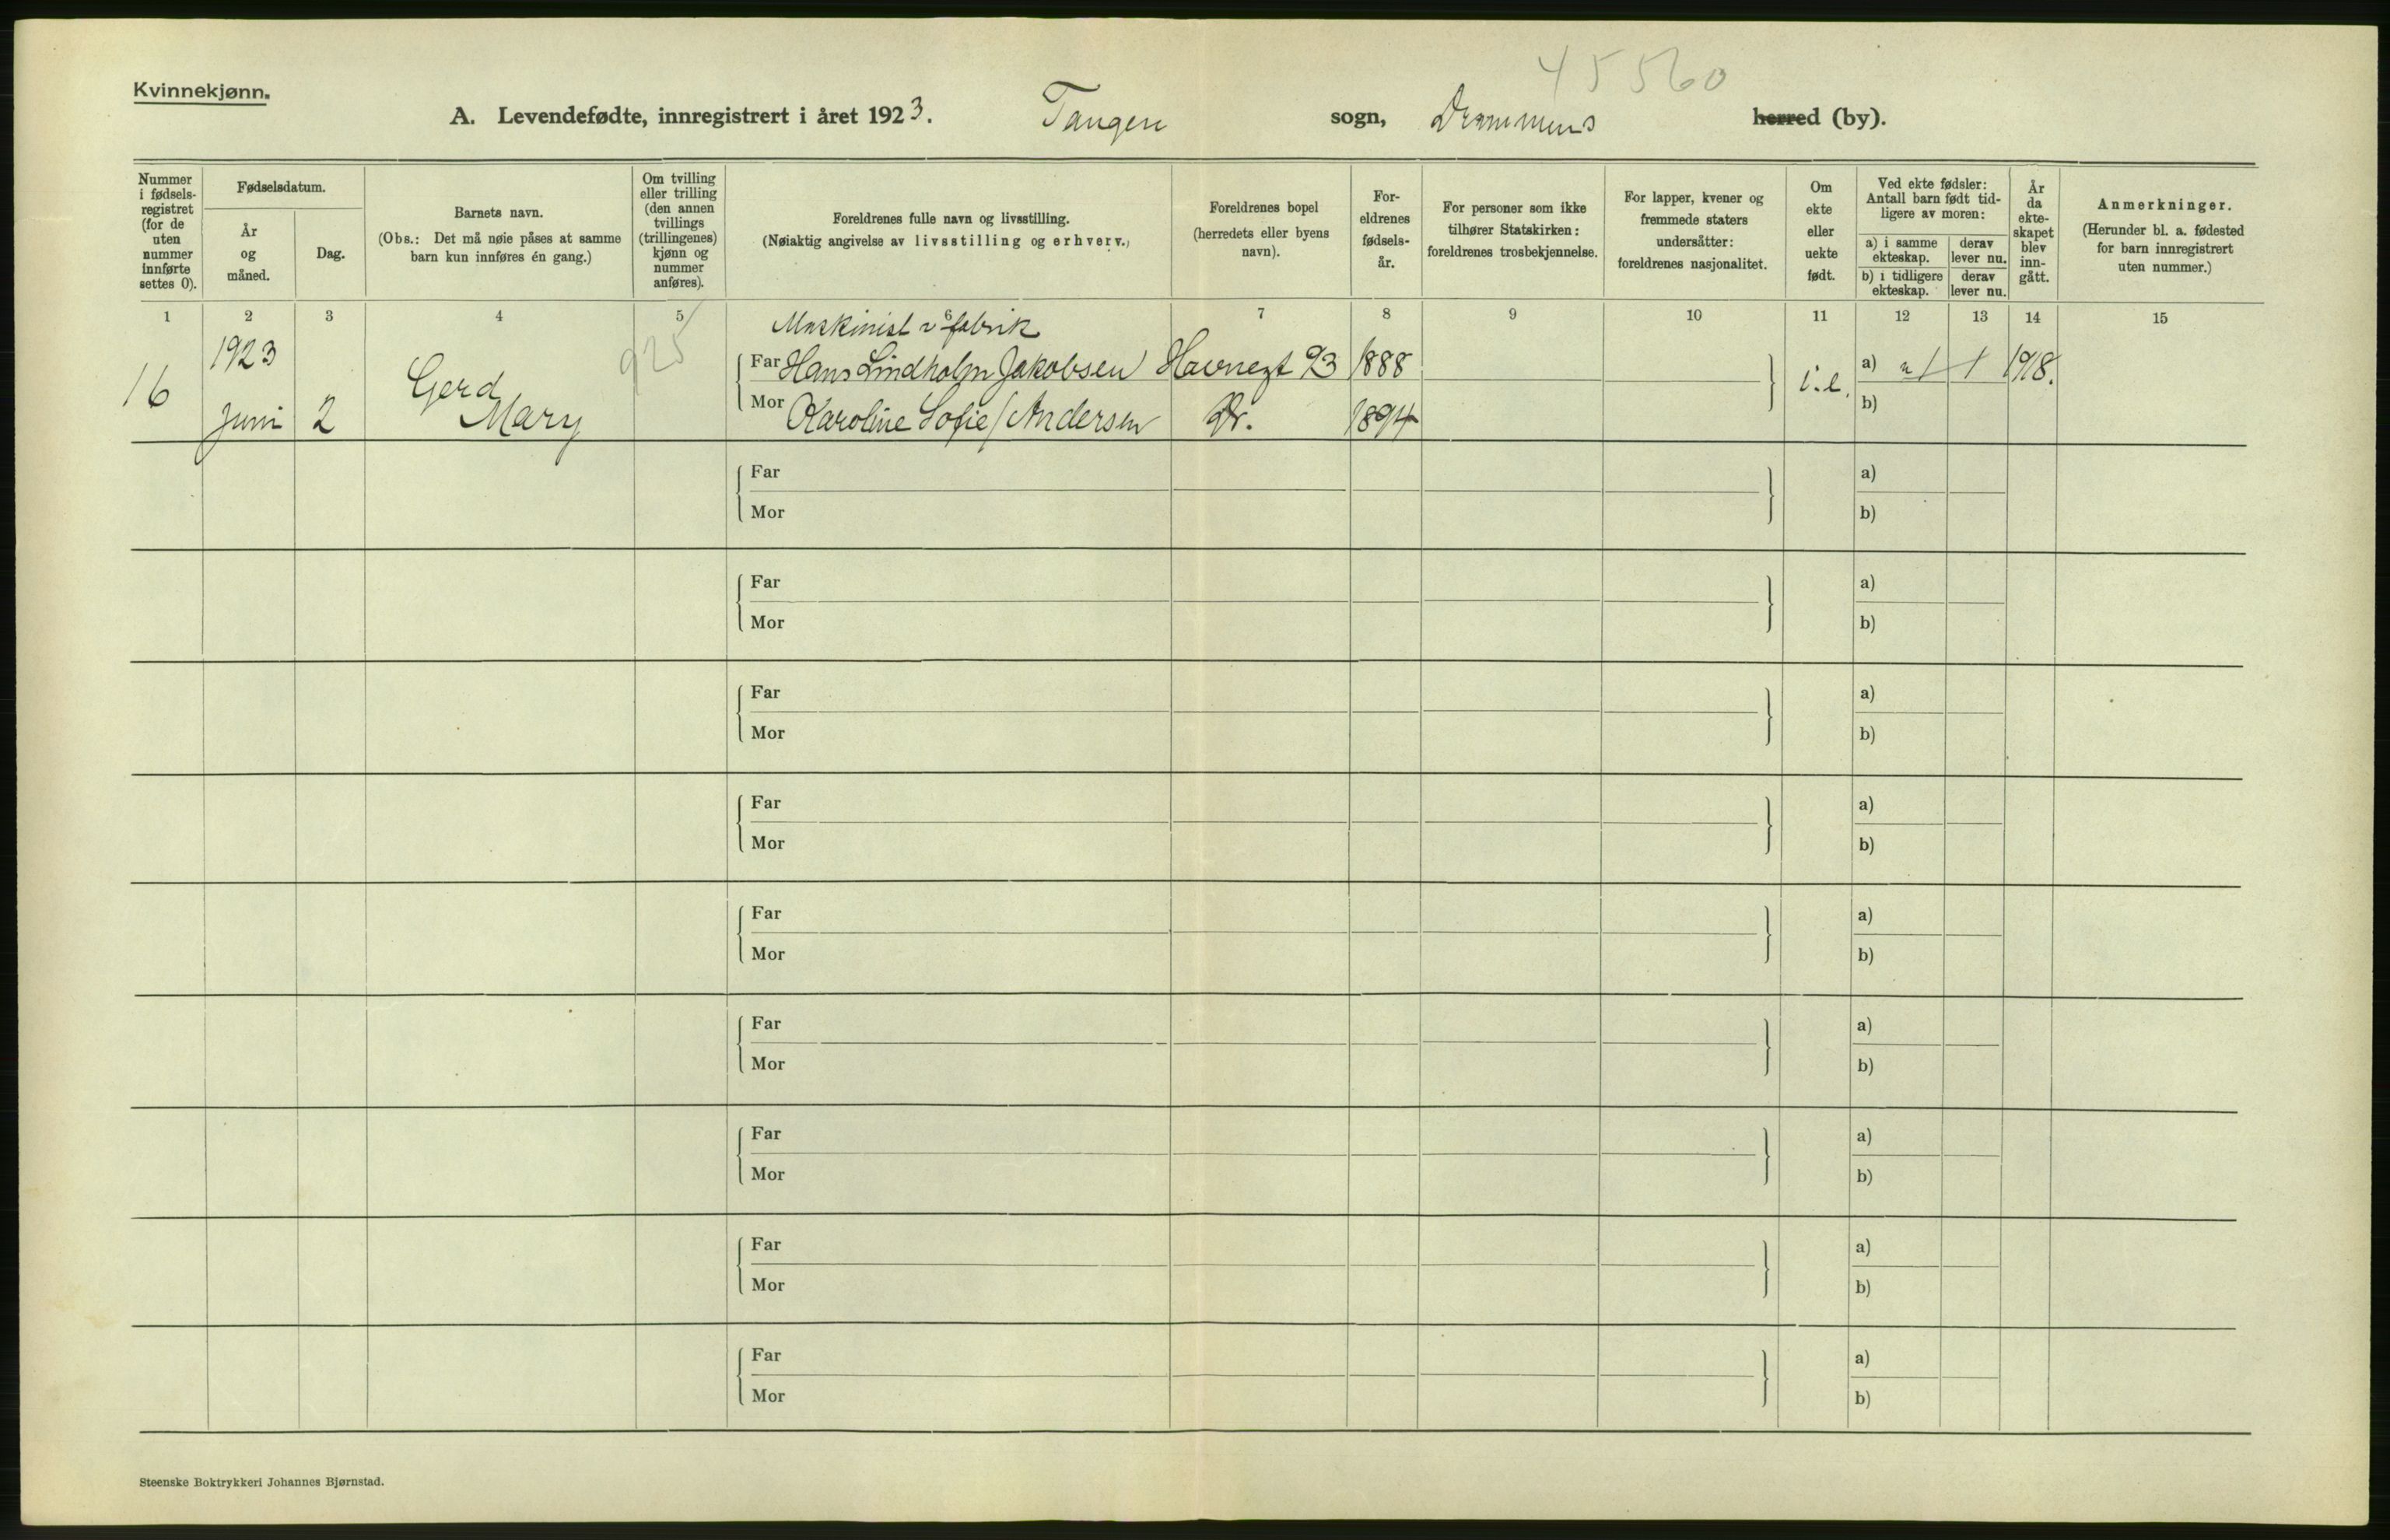 45560
Kvinnekjønn.
A. Levendefødte, innregistrert i året 1923. Tangen sogn, Drammens herred (by).
Nummer i fødsels- registret (for de uten nummer innførte settes 0).
Fødselsdatum.
År og måned.
Dag.
Barnets navn.
(Obs.: Det må nøie påses at samme barn kun innføres én gang.)
Om tvilling eller trilling (den annen tvillings (trillingenes) kjønn og nummer anføres).
Foreldrenes fulle navn og livsstilling.
(Nøiaktig angivelse av livsstilling og erhverv.)
Foreldrenes bopel (herredets eller byens navn).
For- eldrenes fødsels- år.
For personer som ikke tilhører Statskirken: foreldrenes trosbekjennelse.
For lapper, kvener og fremmede staters undersåtter: foreldrenes nasjonalitet.
Om ekte eller uekte født.
Ved ekte fødsler: Antall barn født tid- ligere av moren:
a) i samme ekteskap.
derav lever nu.
b) i tidligere ekteskap.
derav lever nu.
År da ekte- skapet blev inn- gått.
Anmerkninger.
(Herunder bl. a. fødested for barn innregistrert uten nummer.)
1 2 3 4 5 6 7 8 9 10 11 12 13 14 15
925
Maskinist v fabrik
16 1923 Juni 2 Gerd Mary
Far Hans Lindholm Jakobsen Havnegt 93 1888
i.e. a) 1 1 1918.
Mor Karoline Sofie / Andersen Dr. 1894
b)
Far a)
Mor b)
Far a)
Mor b)
Far a)
Mor b)
Far a)
Mor b)
Far a)
Mor b)
Far a)
Mor b)
Far a)
Mor b)
Far a)
Mor b)
Far a)
Mor b)
Steenske Boktrykkeri Johannes Bjørnstad.